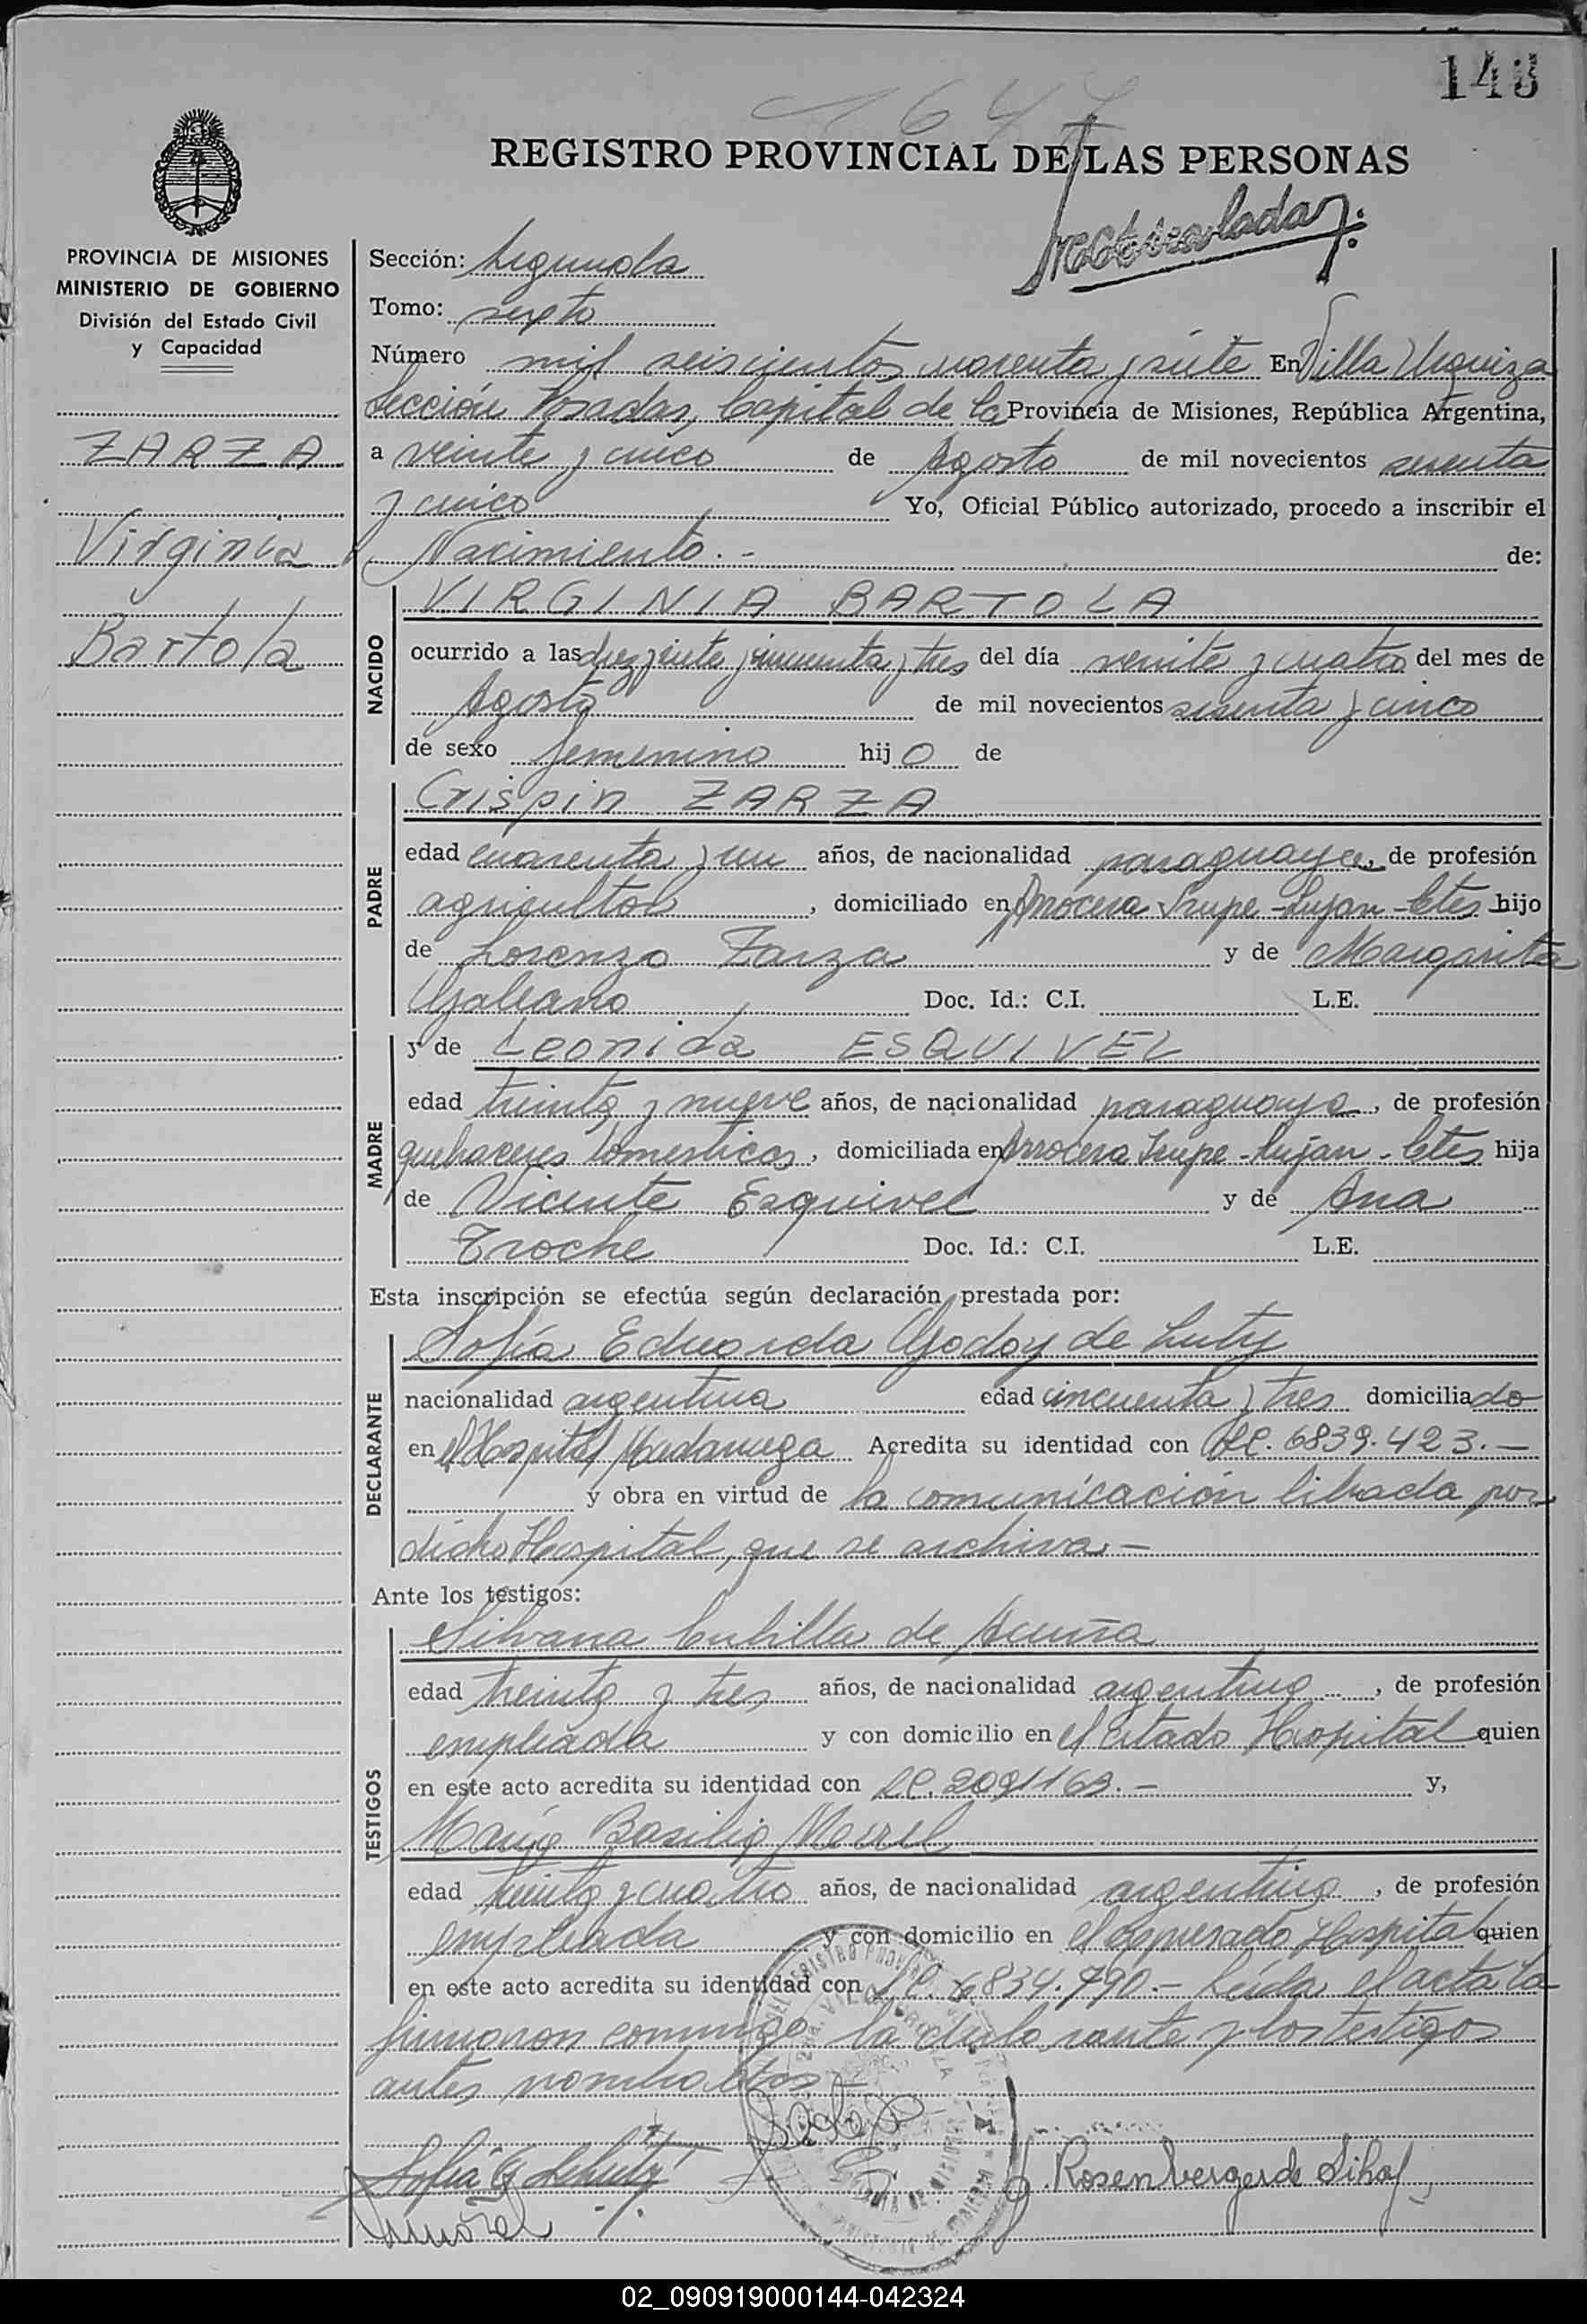 148
1647
REGISTRO PROVINCIAL DE LAS PERSONAS
PROVINCIA DE MISIONES
MINISTERIO DE GOBIERNO
División del Estado Civil
y Capacidad
ZARZA
Virginia
Bartola
Sección: Segunda
Tomo: sexto
Número mil seiscientos cuarenta y siete En Villa Urquiza
Sección Posadas, Capital de la Provincia de Misiones, República Argentina,
a veinte y cinco de Agosto de mil novecientos sesenta
y cinco Yo, Oficial Público autorizado, procedo a inscribir el
Nacimiento.- de:
NACIDO
VIRGINIA BARTOLA
ocurrido a las diez y siete y cincuenta y tres del día veinte y cuatro del mes de
Agosto de mil novecientos sesenta y cinco
de sexo femenino hij o de
PADRE
Crispin ZARZA
edad cuarenta y un años, de nacionalidad paraguaya, de profesión
agricultor, domiciliado en Arrocera Irupe - Lujan - Ctes hijo
de Lorenzo Zarza y de Margarita
Galeano Doc. Id.: C.I. L.E.
MADRE
y de Leonida ESQUIVEL
edad treinta y nueve años, de nacionalidad paraguaya, de profesión
quehaceres domesticos, domiciliada en Arrocera Irupe - Lujan - Ctes hija
de Vicente Esquivel y de Ana
Troche Doc. Id.: C.I. L.E.
Esta inscripción se efectúa según declaración prestada por:
DECLARANTE
Sofía Eduarda Godoy de Luty
nacionalidad argentina edad cincuenta y tres domiciliado
en el Hospital Madariaga Acredita su identidad con LC. 6839.423.-
y obra en virtud de la comunicación librada por
dicho Hospital, que se archiva.-
Ante los testigos:
TESTIGOS
Silvana Cubilla de Acuña
edad treinta y tres años, de nacionalidad argentina, de profesión
empleada y con domicilio en el citado Hospital quien
en este acto acredita su identidad con LC. 2091163.- y,
María Basilia Morel
edad treinta y cuatro años, de nacionalidad argentina, de profesión
empleada y con domicilio en el expresado Hospital quien
en este acto acredita su identidad con LC. 6834.790.- Leída el acta la
firmaron conmigo la declarante y los testigos
antes nombrados.-
Rosenberger de Silva
02_090919000144-042324